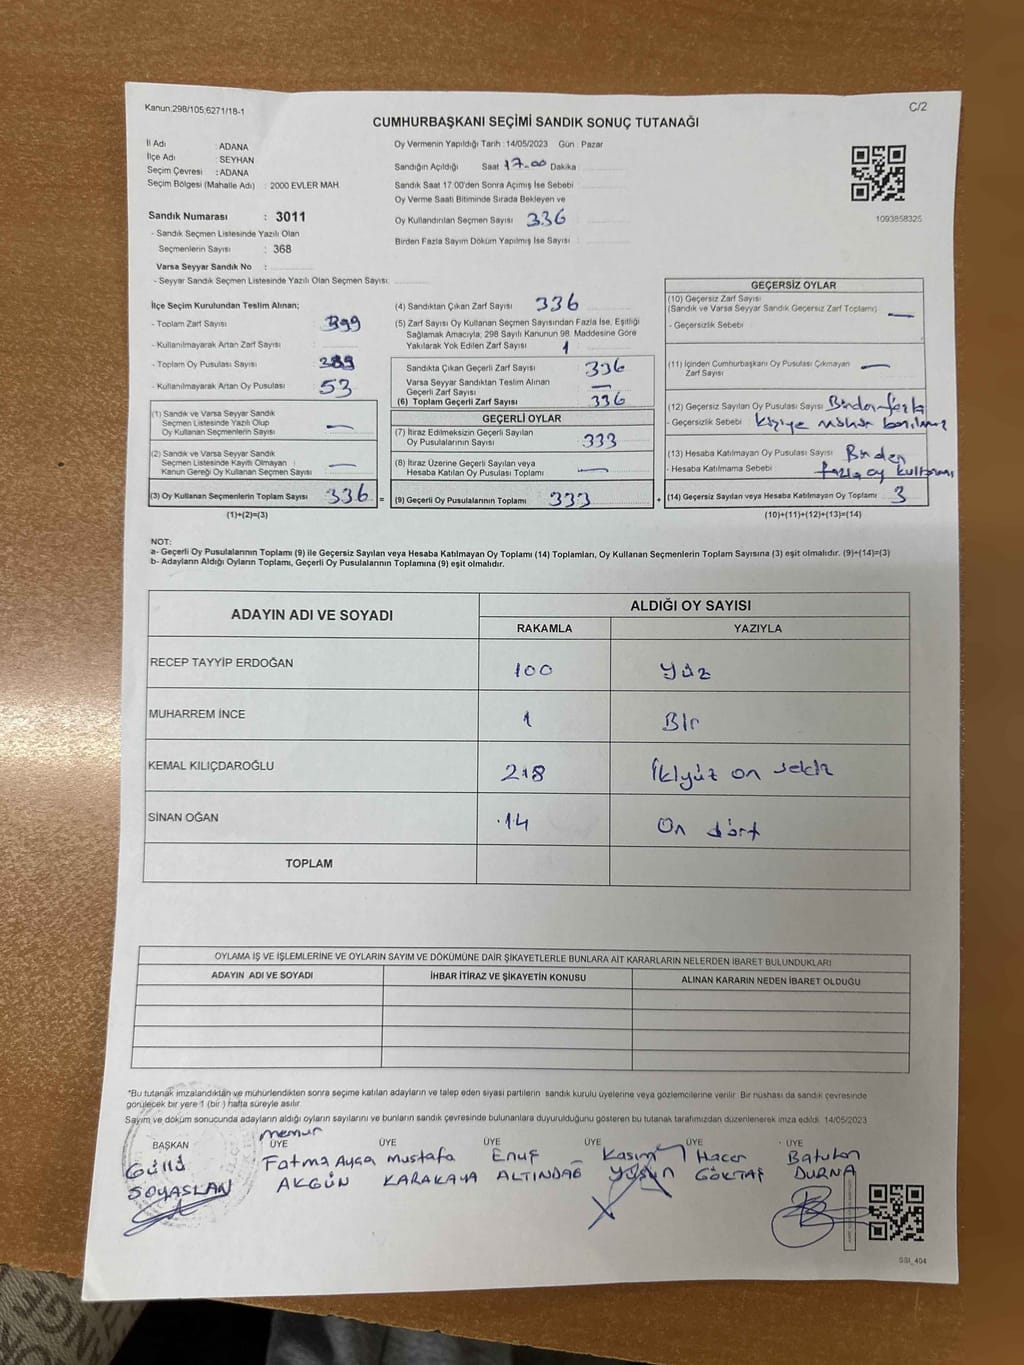 Kanun:298/105;6271/18-1
C/2
CUMHURBAŞKANI SEÇİMİ SANDIK SONUÇ TUTANAĞI
İl Adı : ADANA
İlçe Adı : SEYHAN
Seçim Çevresi : ADANA
Seçim Bölgesi (Mahalle Adı) : 2000 EVLER MAH.
Sandık Numarası : 3011
- Sandık Seçmen Listesinde Yazılı Olan
Seçmenlerin Sayısı : 368
Varsa Seyyar Sandık No :
- Seyyar Sandık Seçmen Listesinde Yazılı Olan Seçmen Sayısı:
Oy Vermenin Yapıldığı Tarih : 14/05/2023 Gün : Pazar
Sandığın Açıldığı Saat 17.00 Dakika
Sandık Saat 17:00'den Sonra Açımış İse Sebebi
Oy Verme Saati Bitiminde Sırada Bekleyen ve
Oy Kullandırılan Seçmen Sayısı 336
Birden Fazla Sayım Döküm Yapılmış İse Sayısı :
1093858325
İlçe Seçim Kurulundan Teslim Alınan;
- Toplam Zarf Sayısı 399
- Kullanılmayarak Artan Zarf Sayısı :
- Toplam Oy Pusulası Sayısı 389
- Kullanılmayarak Artan Oy Pusulası 53
(1) Sandık ve Varsa Seyyar Sandık
Seçmen Listesinde Yazılı Olup
Oy Kullanan Seçmenlerin Sayısı —
(2) Sandık ve Varsa Seyyar Sandık
Seçmen Listesinde Kayıtlı Olmayan
Kanun Gereği Oy Kullanan Seçmen Sayısı —
(3) Oy Kullanan Seçmenlerin Toplam Sayısı 336 =
(1)+(2)=(3)
(4) Sandıktan Çıkan Zarf Sayısı 336
(5) Zarf Sayısı Oy Kullanan Seçmen Sayısından Fazla İse, Eşitliği
Sağlamak Amacıyla; 298 Sayılı Kanunun 98. Maddesine Göre
Yakılarak Yok Edilen Zarf Sayısı 1
Sandıkta Çıkan Geçerli Zarf Sayısı 336
Varsa Seyyar Sandıktan Teslim Alınan
Geçerli Zarf Sayısı —
(6) Toplam Geçerli Zarf Sayısı 336
GEÇERLİ OYLAR
(7) İtiraz Edilmeksizin Geçerli Sayılan
Oy Pusulalarının Sayısı 333
(8) İtiraz Üzerine Geçerli Sayılan veya
Hesaba Katılan Oy Pusulası Toplamı —
(9) Geçerli Oy Pusulalarının Toplamı 333 +
GEÇERSİZ OYLAR
(10) Geçersiz Zarf Sayısı
(Sandık ve Varsa Seyyar Sandık Geçersiz Zarf Toplamı) —
- Geçersizlik Sebebi :
(11) İçinden Cumhurbaşkanı Oy Pusulası Çıkmayan
Zarf Sayısı —
(12) Geçersiz Sayılan Oy Pusulası Sayısı Birden fazla
- Geçersizlik Sebebi : kişiye mühür
(13) Hesaba Katılmayan Oy Pusulası Sayısı
- Hesaba Katılmama Sebebi fazla oy
(14) Geçersiz Sayılan veya Hesaba Katılmayan Oy Toplamı 3
(10)+(11)+(12)+(13)=(14)
NOT:
a- Geçerli Oy Pusulalarının Toplamı (9) ile Geçersiz Sayılan veya Hesaba Katılmayan Oy Toplamı (14) Toplamları, Oy Kullanan Seçmenlerin Toplam Sayısına (3) eşit olmalıdır. (9)+(14)=(3)
b- Adayların Aldığı Oyların Toplamı, Geçerli Oy Pusulalarının Toplamına (9) eşit olmalıdır.
ADAYIN ADI VE SOYADI
ALDIĞI OY SAYISI
RAKAMLA YAZIYLA
RECEP TAYYİP ERDOĞAN 100 Yüz
MUHARREM İNCE 1 Bir
KEMAL KILIÇDAROĞLU 218 İkiyüz on sekiz
SİNAN OĞAN 14 On dört
TOPLAM
OYLAMA İŞ VE İŞLEMLERİNE VE OYLARIN SAYIM VE DÖKÜMÜNE DAİR ŞİKAYETLERLE BUNLARA AİT KARARLARIN NELERDEN İBARET BULUNDUKLARI
ADAYIN ADI VE SOYADI İHBAR İTİRAZ VE ŞİKAYETİN KONUSU ALINAN KARARIN NEDEN İBARET OLDUĞU
*Bu tutanak imzalandıktan ve mühürlendikten sonra seçime katılan adayların ve talep eden siyasi partilerin sandık kurulu üyelerine veya gözlemcilerine verilir. Bir nüshası da sandık çevresinde
görülecek bir yere 1 (bir ) hafta süreyle asılır.
Sayım ve döküm sonucunda adayların aldığı oyların sayılarını ve bunların sandık çevresinde bulunanlara duyurulduğunu gösteren bu tutanak tarafımızdan düzenlenerek imza edildi. 14/05/2023
memur
BAŞKAN ÜYE ÜYE ÜYE ÜYE ÜYE ÜYE
Güllü Fatma Ayça Mustafa Kasım Hacer Batuhan
SOYASLAN AKGÜN KARAKAYA ALTINDAĞ GÖKTAŞ DURNA
SSI_404